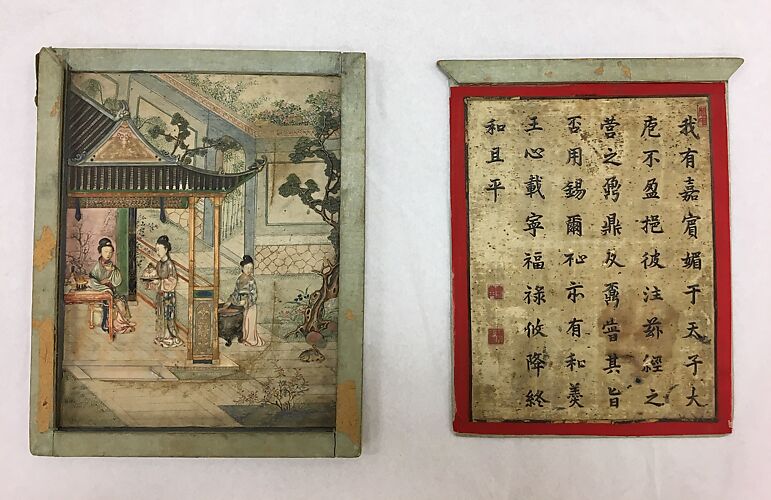 我有嘉賓媚于天子大
庖不盈挹彼注茲經之
营之鼐鼎及鼒嘗其旨
否用錫爾祉亦有和羹
王心載寧福祿攸降終
和且平